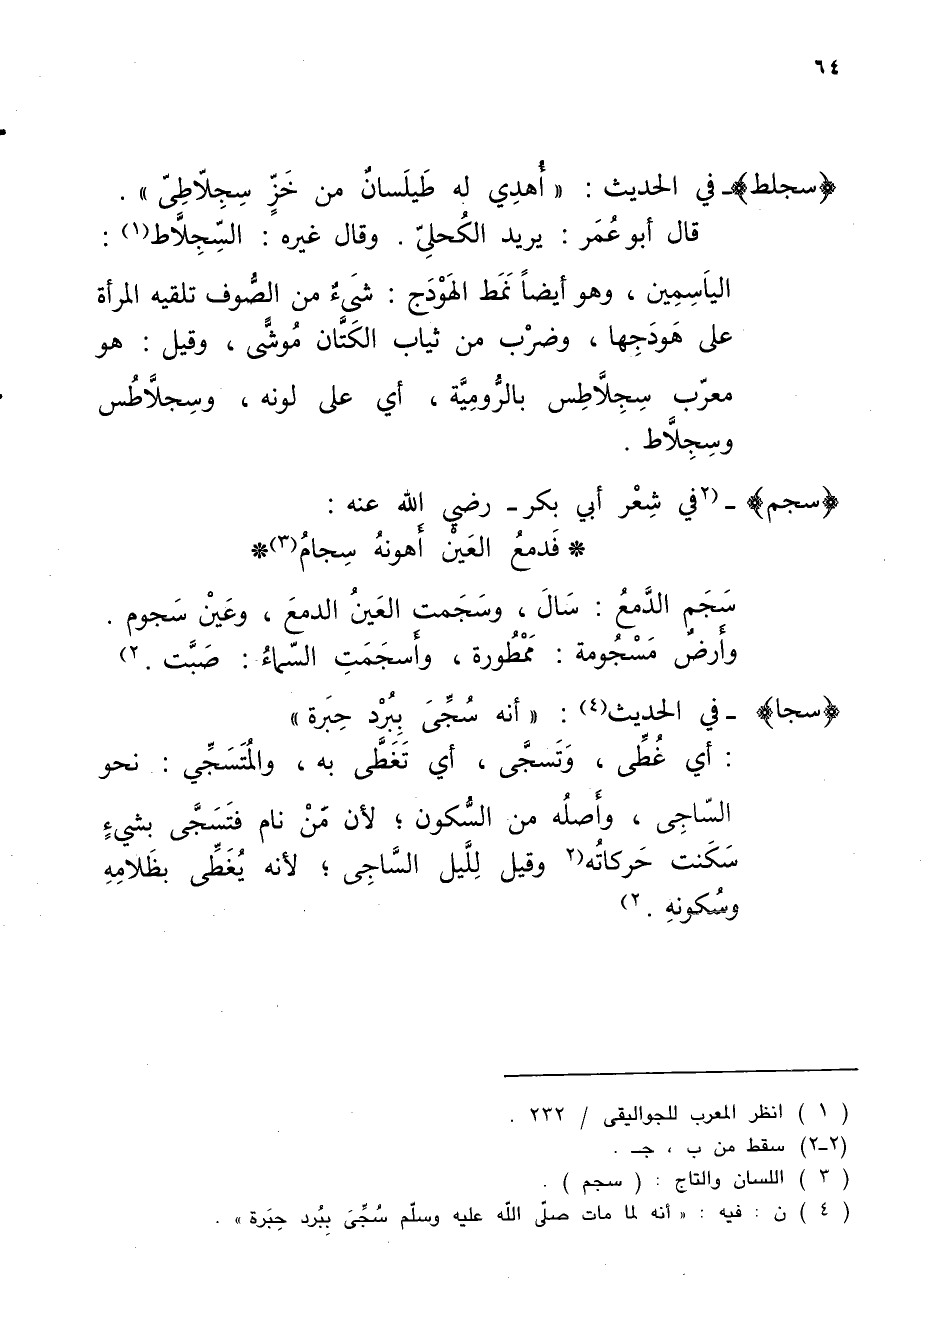 ٦٤
﴿سجلط﴾ـ في الحديث : « أُهدِي له طَيلَسانٌ من خَزٍّ سِجِلّاطِىّ » .
قال أبو عُمَر : يريد الكُحلىّ . وقال غيره : السِّجِلَّاط(١) :
الياَسِمِين ، وهو أيضاً نَمَط الهَوْدَج : شىَءٌ من الصُّوف تلقيه المرأة
على هَودَجِها ، وضرْب من ثياب الكَتَّان مُوشًّى ، وقيل : هو
معرّب سِجِلَّاطِس بالرُّومِيَّة ، أي على لونه ، وسِجلَّاطُس
وسِجِلَّاط .
﴿سجم﴾ ـ (٢في شِعْر أبي بكر ـ رضي الله عنه :
* فَدمعُ العَينْ أَهونهُ سِجامُ(٣)*
سَجَم الدَّمعُ : سَالَ ، وسَجَمت العَينُ الدمعَ ، وعَينْ سَجوم .
وأَرضٌ مَسْجُومة : مَمْطُورة ، وأَسجَمَتِ السّماءُ : صَبَّت . ٢)
﴿سجا﴾ ـ في الحديث(٤) : « أنه سُجِّىَ بِبُرْد حِبَرة »
: أي غُطِّى ، وَتَسجَّى ، أي تَغَطَّى به ، والمُتَسَجِّي : نحو
السّاجِى ، وأَصلُه من السُّكون ؛ لأن مَنْ نام فتَسَجَّى بشيءٍ
سَكَنت حَركاتُه(٢ وقيل لِلَّيل السَّاجِى ؛ لأنه يُغَطِّى بظَلامِهِ
وسُكونهِ . ٢)
( ١ ) انظر المعرب للجواليقى / ٢٣٢ .
(٢ـ٢) سقط من ب ، جـ .
( ٣ ) اللسان والتاج : ( سجم ) .
( ٤ ) ن : فيه : « أنه لما مات صلّى اللّه عليه وسلّم سُجِّىَ بِبُرد حِبَرة » .